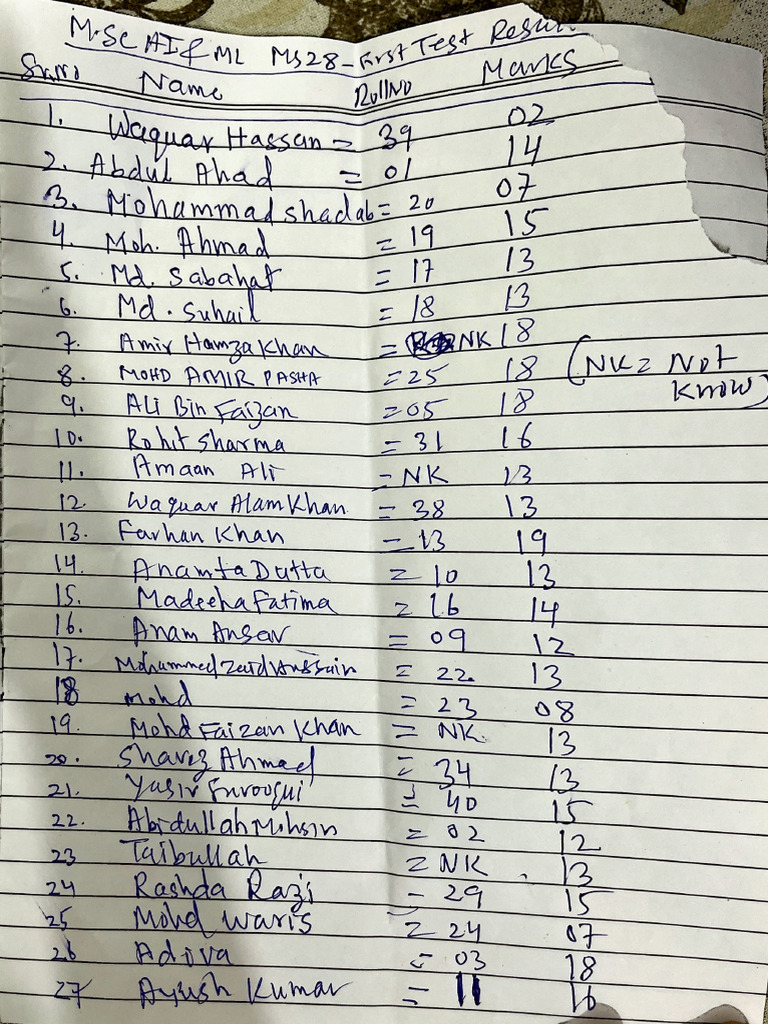 M.Sc AI & ML MS28 - First Test
Sr.No Name Roll No Marks
1. Waquar Hassan = 39 02
2. Abdul Ahad = 01 14
3. Mohammad shadab = 20 07
4. Moh. Ahmad = 19 15
5. Md. Sabahat = 17 13
6. Md. Suhail = 18 13
7. Amir Hamza Khan = NK 18
(NK = Not
8. MOHD AMIR PASHA = 25 18
Know)
9. Ali Bin Faizan = 05 18
10. Rohit Sharma = 31 16
11. Amaan Ali = NK 13
12. Waquar Alam Khan = 38 13
13. Farhan Khan = 13 19
14. Anamta Datta = 10 13
15. Madeeha Fatima = 16 14
16. Anam Ansar = 09 12
17. Mohammed Zaid Hussain = 22 13
18 Mohd = 23 08
19. Mohd Faizan Khan = NK. 13
20. Sharez Ahmad = 34 13
21. Yasir Furooqui = 40 15
22. Abidullah Mohsin = 02 12
23 Taibullah = NK 13
24 Rashda Razi = 29 15
25 Mohd Waris = 24 07
26 = 03 18
27 Ayush Kumar = 11 16